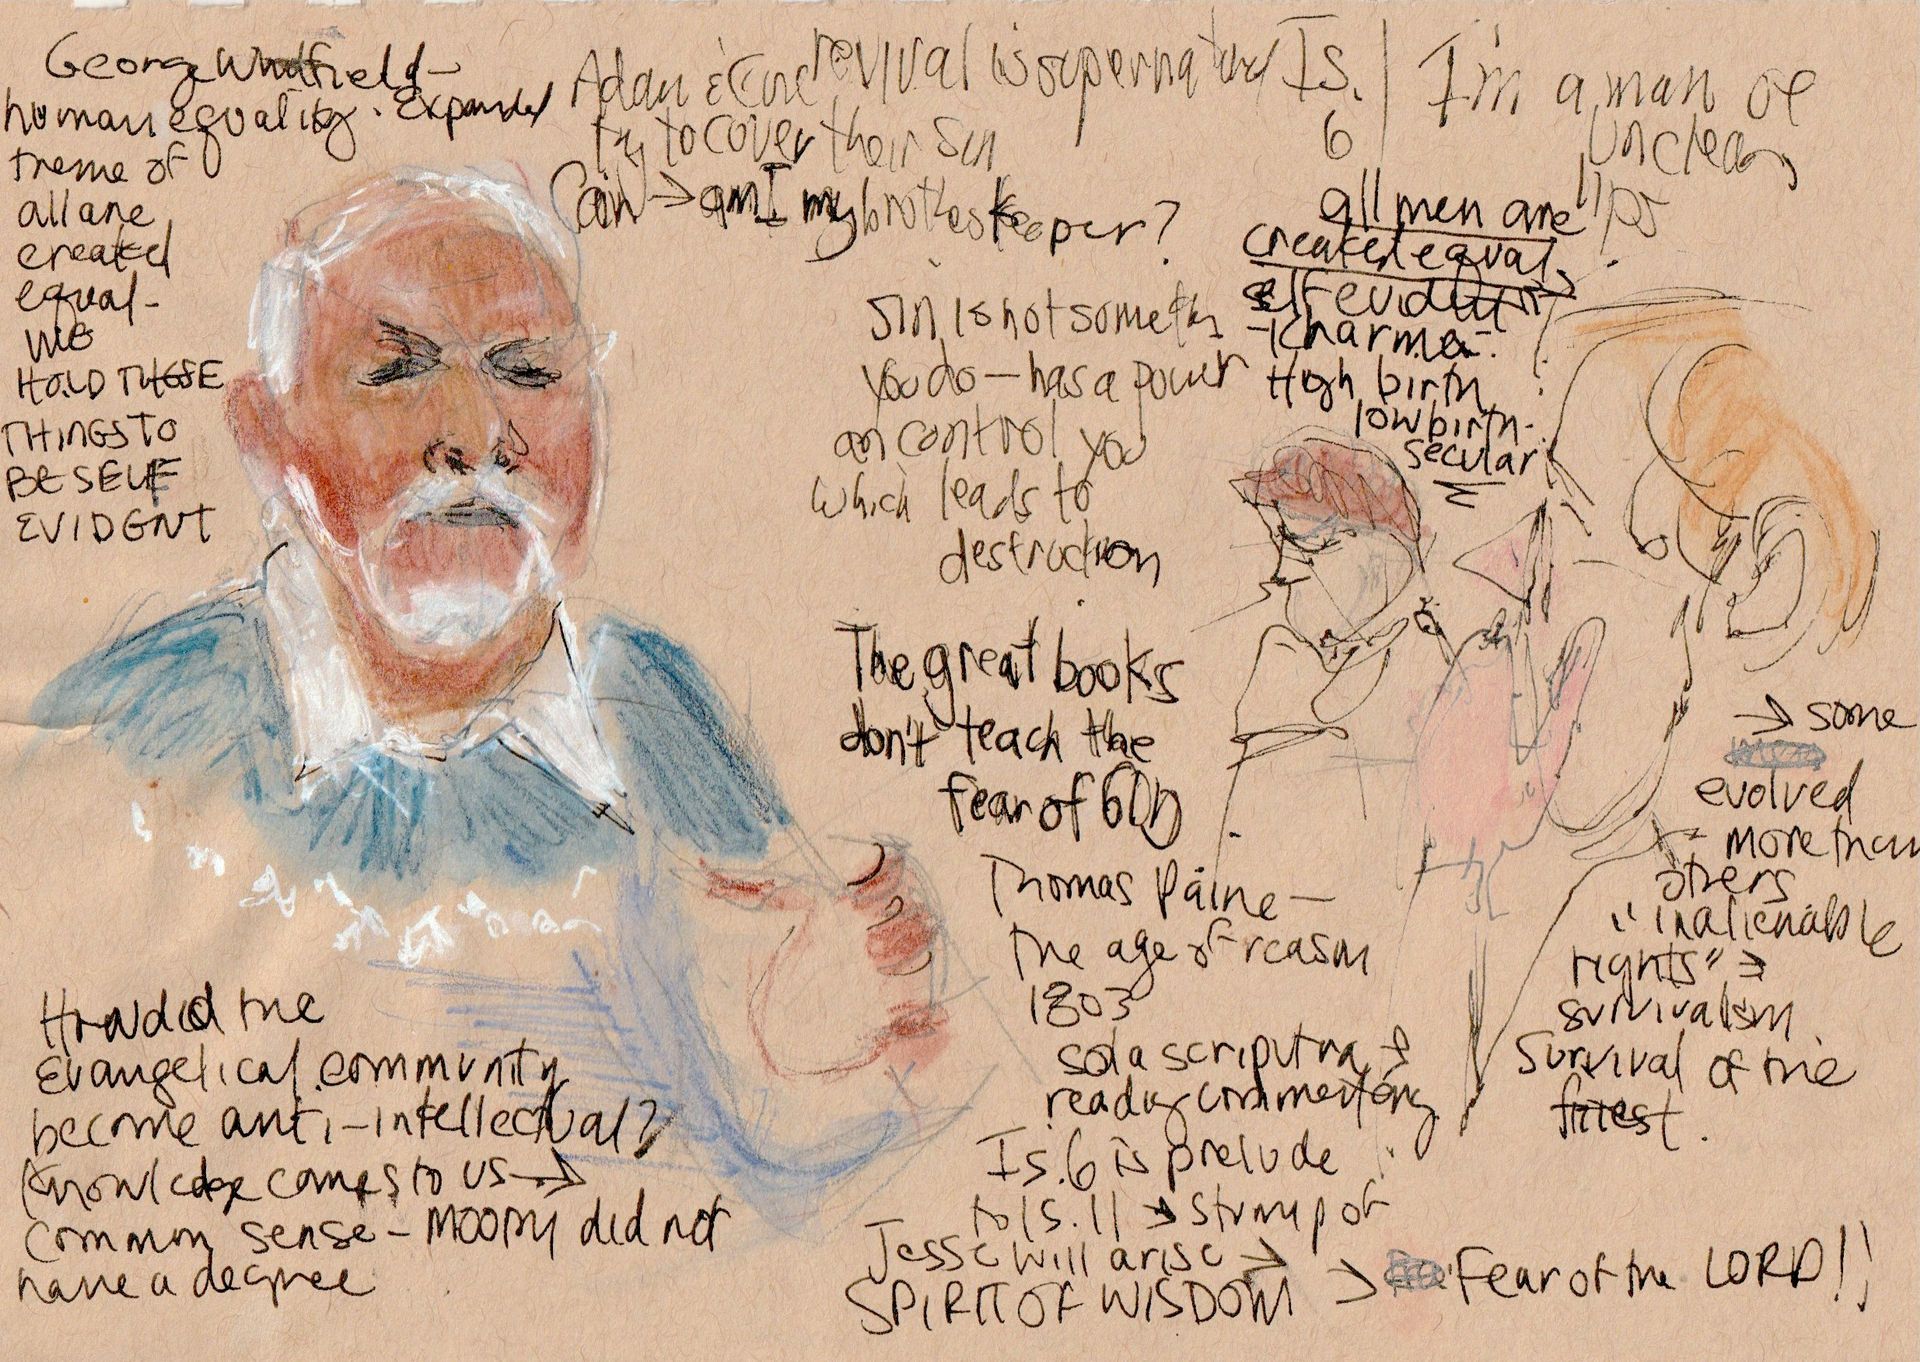 George Windfield -
human equality. Expanded
theme of
all are
created
equal -
We
HOLD THESE
THINGS TO
BE SELF
EVIDENT
How did the
Evangelical community
become anti-intellectual?
Knowledge comes to us →
common sense - MOODY did not
have a degree
Adam & Eve
try to cover their sin
Cain → am I my brothers keeper?
revival is supernatural
Is.
6
I'm a man of
unclean
lips
Sin is not someth
you do - has a power
an control you
which leads to
destruction
all men are
created equal,
self evident
- Karma -
High birth
low birth -
secular
The great books
don't teach the
fear of GOD
Thomas Paine -
The age of reason
1803
sola scriptura →
reading commentary
Is. 6 is prelude
to Is. 11 → stump of
Jesse will arise →
SPIRIT OF WISDOM → Fear of the LORD!!
→ some
men
evolved
- more than
others
"inalienable
rights" →
survivalism
Survival of the
fittest.